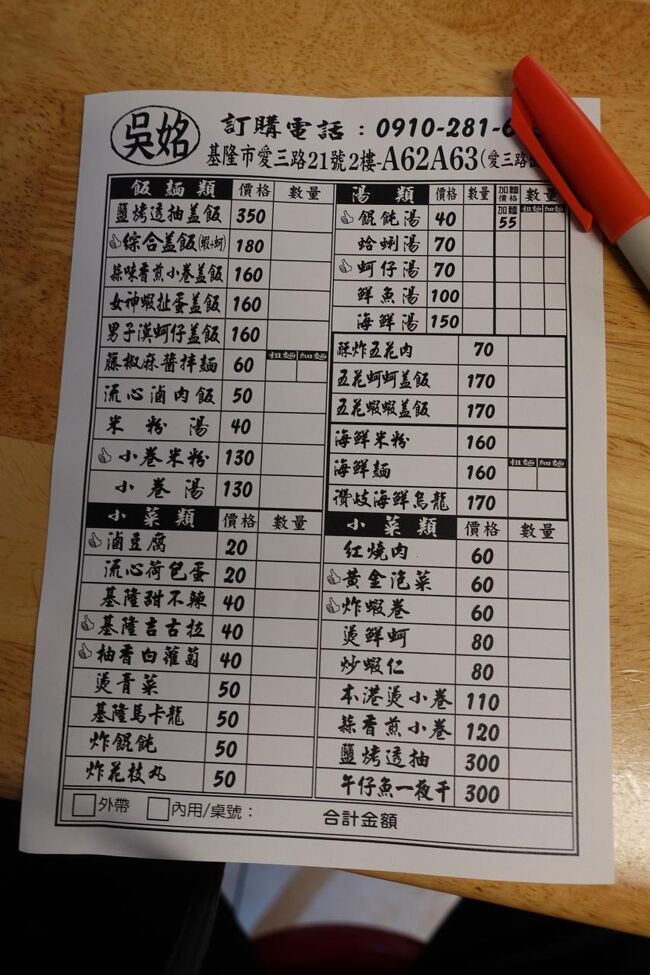 吳姳
訂購電話：0910-281-6
基隆市愛三路21號2樓-A62A63(愛三路
飯麵類 價格 數量
鹽烤透抽盖飯 350
綜合盖飯(蝦+蚵) 180
蒜味香煎小卷盖飯 160
女神蝦扯蛋盖飯 160
男子漢蚵仔盖飯 160
藤椒麻醬拌麵 60 粗麵 加麵
流心滷肉飯 50
米粉湯 40
小卷米粉 130
小卷湯 130
小菜類 價格 數量
滷豆腐 20
流心荷包蛋 20
基隆甜不辣 40
基隆吉古拉 40
柚香白蘿蔔 40
燙青菜 50
基隆馬卡龍 50
炸餛飩 50
炸花枝丸 50
湯類 價格 數量 加麵價格 數量
餛飩湯 40 加麵55 粗麵
蛤蜊湯 70
蚵仔湯 70
鮮魚湯 100
海鮮湯 150
酥炸五花肉 70
五花蚵蚵盖飯 170
五花蝦蝦盖飯 170
海鮮米粉 160
海鮮麵 160 粗麵
讚岐海鮮烏龍 170
小菜類 價格 數量
紅燒肉 60
黃金泡菜 60
炸蝦卷 60
燙鮮蚵 80
炒蝦仁 80
本港燙小卷 110
蒜香煎小卷 120
鹽烤透抽 300
午仔魚一夜干 300
外帶 內用/桌號： 合計金額